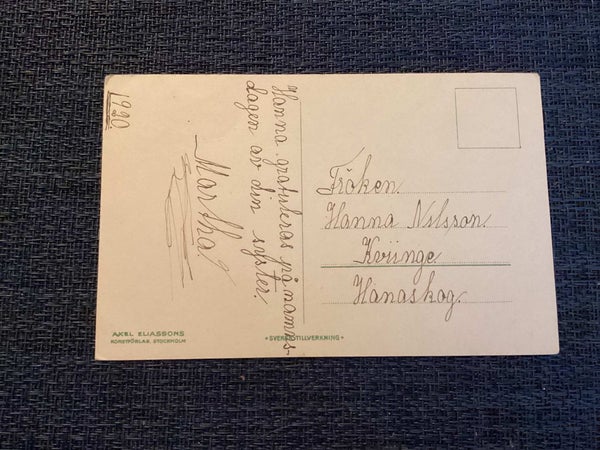 1920
Hanna. gratuleras på namns
dagen av din syster.
Martha.
Fröken
Hanna Nilsson
Kviinge
Hanaskog.
AXEL ELIASSONS
KONSTFÖRLAG STOCKHOLM